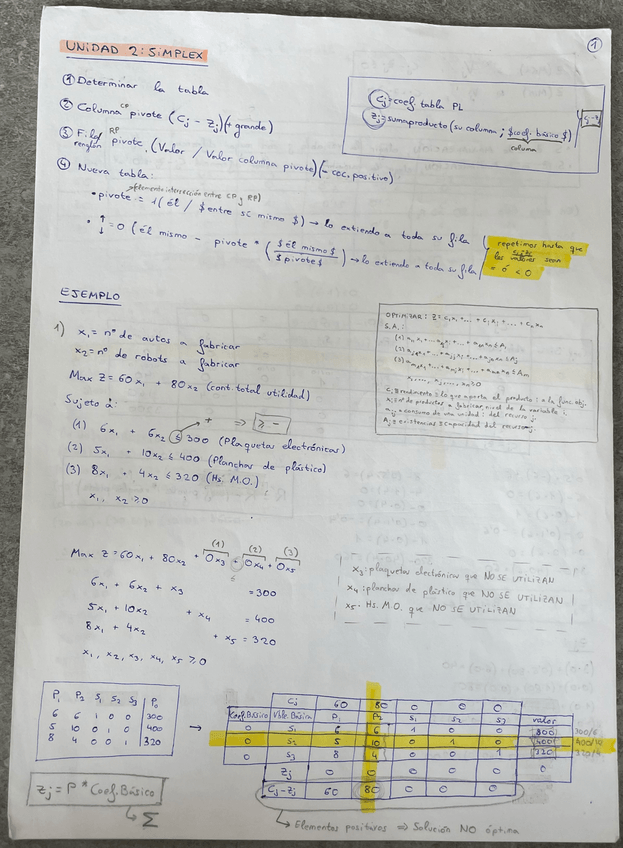 1
UNIDAD 2: SIMPLEX
① Determinar la tabla
② Columna CP pivote (Cj - Zj) (+ grande)
③ Fila RP pivote (Valor / Valor columna pivote) (- coc. positivo)
renglón
④ Nueva tabla:
→ Elemento intersección entre CP y RP
• pivote = 1 (él / $ entre sí mismo $) → lo extiendo a toda su fila
• ↕ = 0 (él mismo - pivote * ($ él mismo $ / $ pivote $)) → lo extiendo a toda su fila
repetimos hasta que
los valores sean
= ó < 0
Cj = coef. tabla PL
Zj = sumaproducto (su columna ; $ coef. básico $)
columna
Cj - Zj
EJEMPLO
1) x1 = nº de autos a fabricar
x2 = nº de robots a fabricar
Max Z = 60x1 + 80x2 (cont. total utilidad)
Sujeto a:
+ ⇒ ≥ -
(1) 6x1 + 6x2 ≤ 300 (Plaquetas electrónicas)
(2) 5x1 + 10x2 ≤ 400 (Planchas de plástico)
(3) 8x1 + 4x2 ≤ 320 (Hs. M.O.)
x1, x2 ≥ 0
OPTIMIZAR: Z = C1x1 + ... + Cjxj + ... + Cnxn
S.A.:
(1)
(2)
(3)
Cj Rendimiento = lo que aporta el producto j a la func. obj.
xj = nº de productos a fabricar, nivel de la variable j
aij = consumo de una unidad j del recurso i
Ai = existencias = capacidad del recurso
(1) (2) (3)
Max Z = 60x1 + 80x2 + 0x3 + 0x4 + 0x5
6x1 + 6x2 + x3 = 300
5x1 + 10x2 + x4 = 400
8x1 + 4x2 + x5 = 320
x1, x2, x3, x4, x5 ≥ 0
x3: plaquetas electrónicas que NO SE UTILIZAN
x4: planchas de plástico que NO SE UTILIZAN
x5: Hs. M.O. que NO SE UTILIZAN
P1 P2 S1 S2 S3 P0
6 6 1 0 0 300
5 10 0 1 0 400
8 4 0 0 1 320
→
Cj 60 80 0 0 0
Coef. Básico Vble. Básica P1 P2 S1 S2 S3 valor
0 S1 6 6 1 0 0 300 300/6
0 S2 5 10 0 1 0 400 400/10
0 S3 8 4 0 0 1 320 320/4
Zj 0 0 0 0 0 0
Cj - Zj 60 80 0 0 0
Zj = P * Coef. Básico
↳ Σ
↳ Elementos positivos ⇒ Solución NO óptima